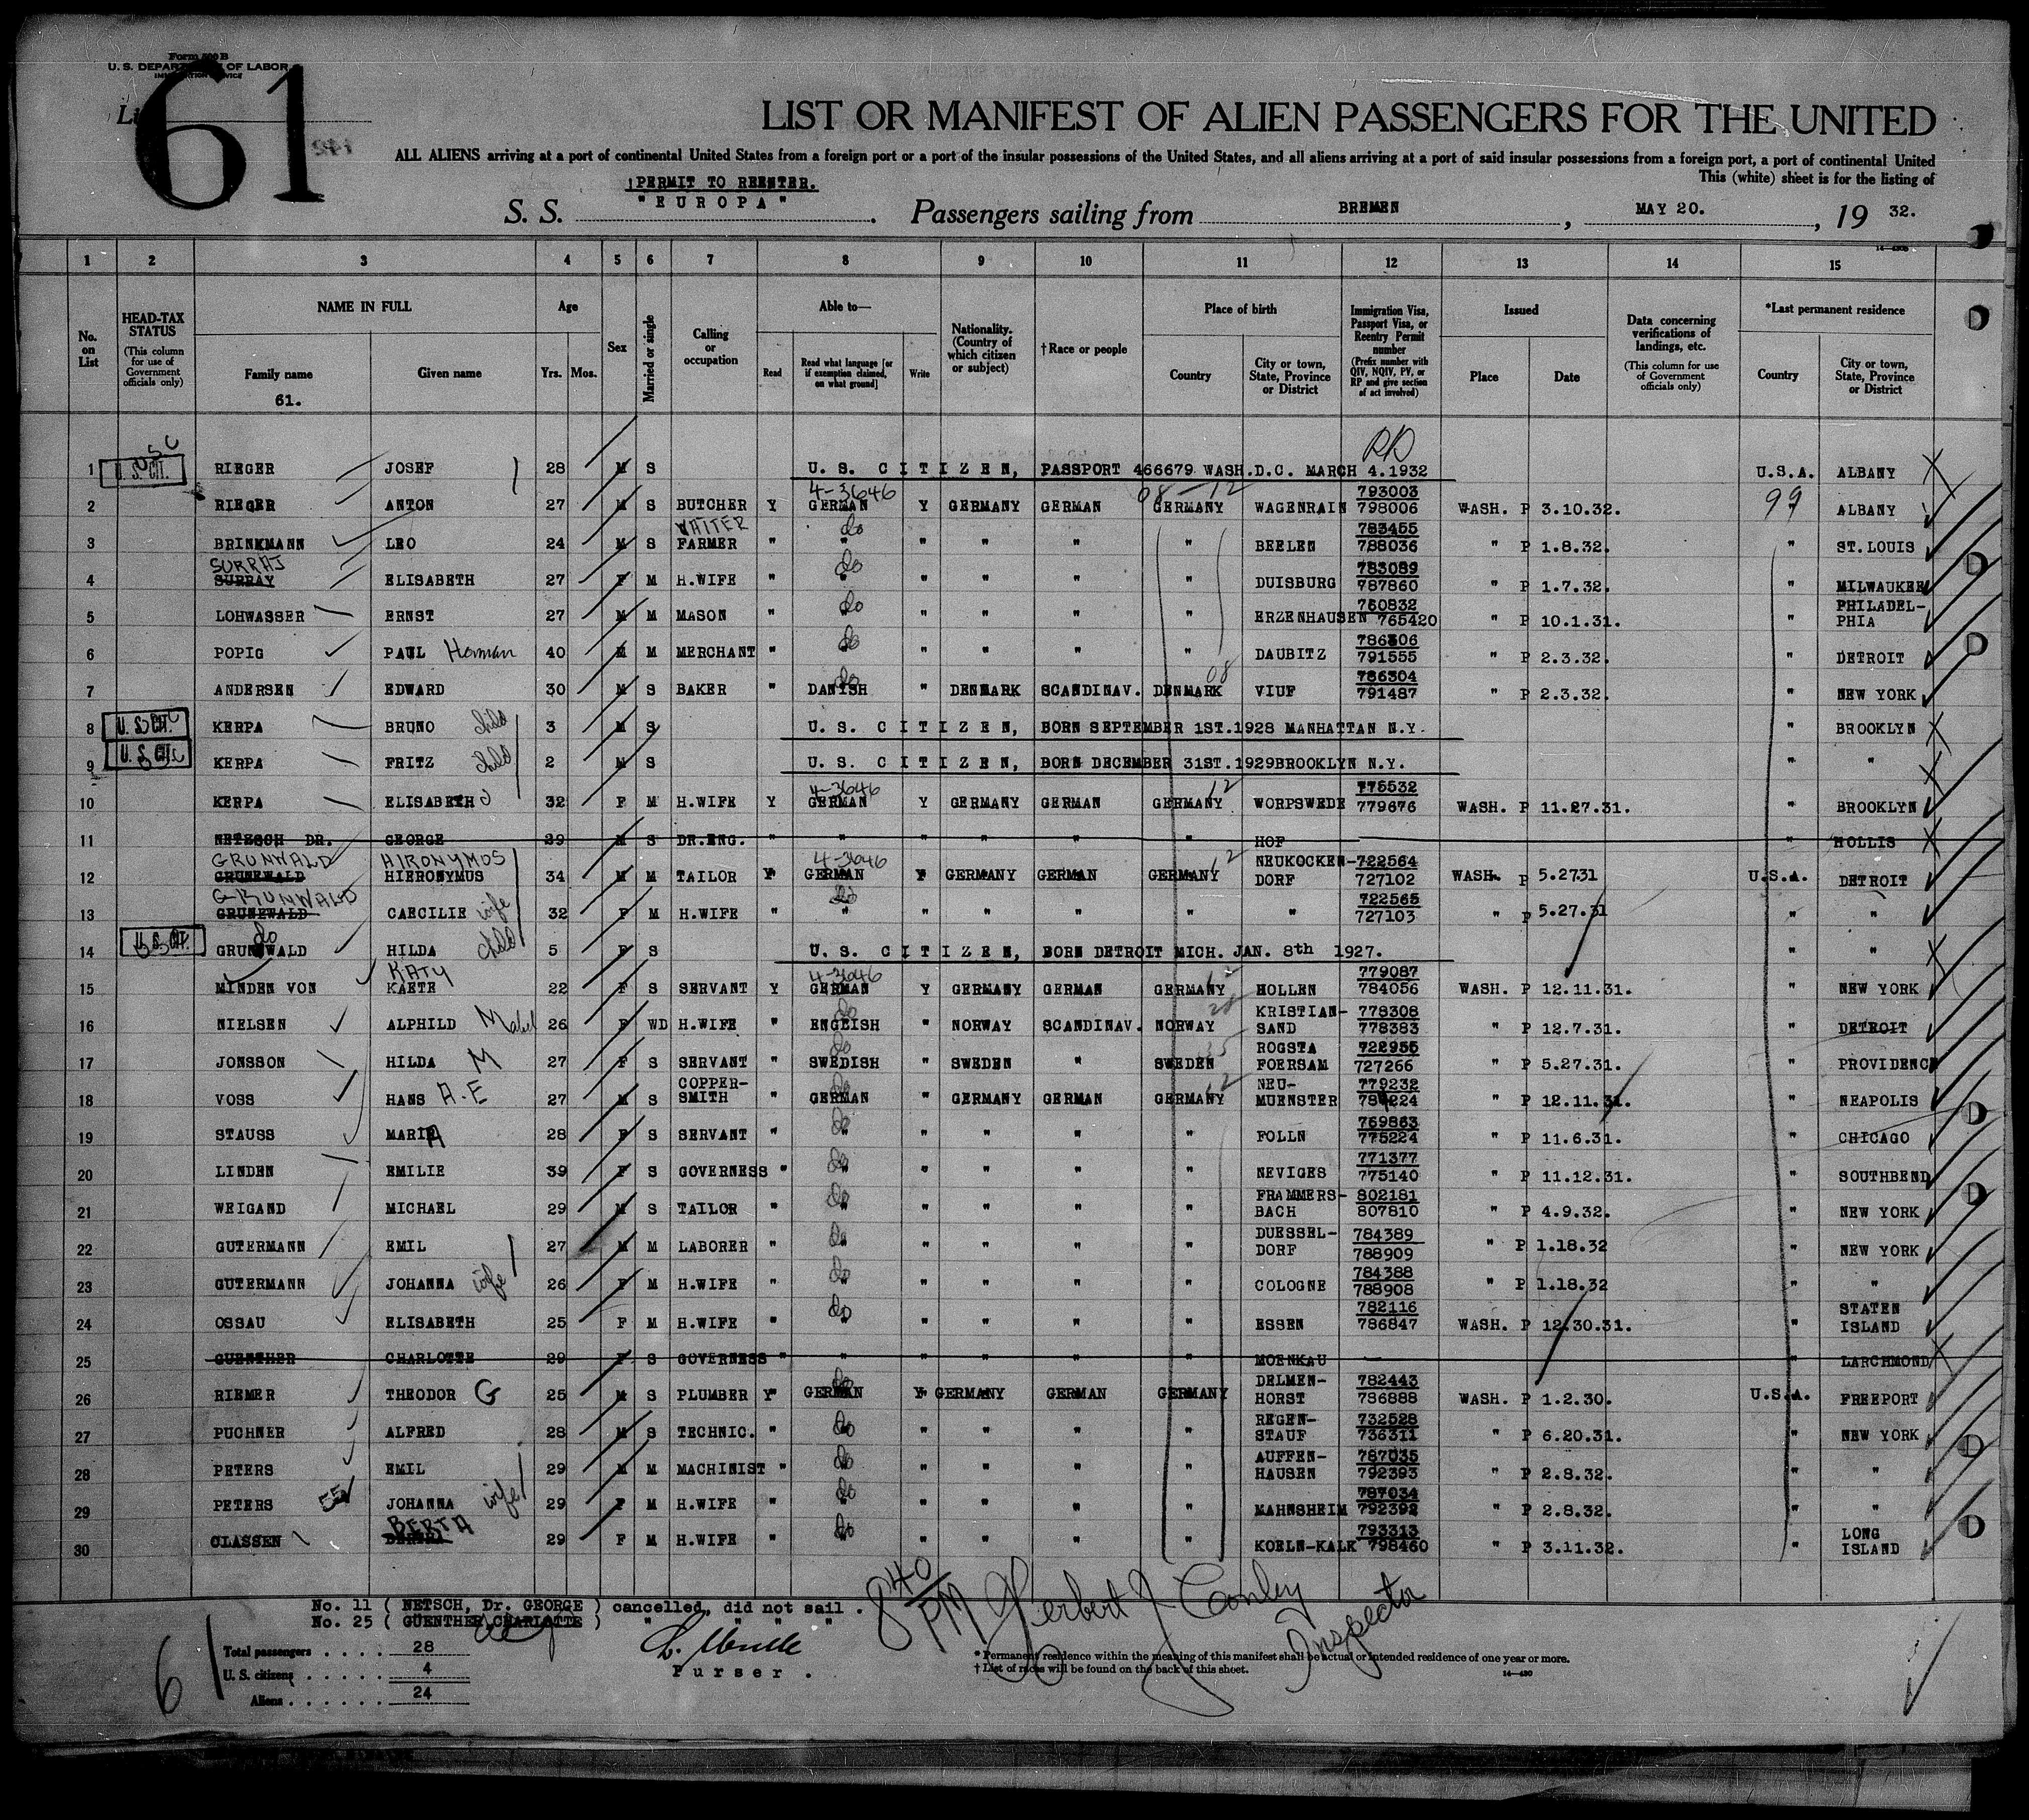 Form 500 B
U. S. DEPARTMENT OF LABOR
IMMIGRATION SERVICE
61
LIST OR MANIFEST OF ALIEN PASSENGERS FOR THE UNITED
ALL ALIENS arriving at a port of continental United States from a foreign port or a port of the insular possessions of the United States, and all aliens arriving at a port of said insular possessions from a foreign port, a port of continental United
This (white) sheet is for the listing of
PERMIT TO REENTER.
S. S. "EUROPA". Passengers sailing from BREMEN, MAY 20., 19 32.
1 2 3 4 5 6 7 8 9 10 11 12 13 14 15
No. on List
HEAD-TAX STATUS (This column for use of Government officials only)
NAME IN FULL
Family name Given name
61.
Age
Yrs. Mos.
Sex
Married or single
Calling or occupation
Able to—
Read Read what language [or if exemption claimed, on what ground] Write
Nationality. (Country of which citizen or subject)
†Race or people
Place of birth
Country City or town, State, Province or District
Immigration Visa, Passport Visa, or Reentry Permit number (Prefix number with QIV, NQIV, PV, or RP and give section of act involved)
Issued
Place Date
Data concerning verifications of landings, etc. (This column for use of Government officials only)
*Last permanent residence
Country City or town, State, Province or District
1 U. S. CIT. RIEGER JOSEF 28 M S U. S. CITIZEN, PASSPORT 466679 WASH.D.C. MARCH 4.1932 U.S.A. ALBANY
2 RIEGER ANTON 27 M S BUTCHER Y 4-3646 GERMAN Y GERMANY GERMAN GERMANY WAGENRAIN 793003 798006 WASH. P 3.10.32. 99 ALBANY
3 BRINKMANN LEO 24 M S WAITER FARMER " do " " " " " BEELEN 783455 788036 " P 1.8.32. " ST.LOUIS
4 SURRAJ SURRAY ELISABETH 27 F M H.WIFE " do " " " " " DUISBURG 783089 787860 " P 1.7.32. " MILWAUKEE
5 LOHWASSER ERNST 27 M M MASON " do " " " " " ERZENHAUSEN 760832 765420 " P 10.1.31. " PHILADELPHIA
6 POPIG PAUL Herman 40 M M MERCHANT " do " " " " " DAUBITZ 786306 791555 " P 2.3.32. " DETROIT
7 ANDERSEN EDWARD 30 M S BAKER " do DANISH " DENMARK SCANDINAV. DENMARK VIUF 786304 791487 " P 2.3.32. " NEW YORK
8 U. S. CIT. KERPA BRUNO child 3 M S U. S. CITIZEN, BORN SEPTEMBER 1ST.1928 MANHATTAN N.Y. " BROOKLYN
9 U. S. CIT. KERPA FRITZ child 2 M S U. S. CITIZEN, BORN DECEMBER 31ST.1929BROOKLYN N.Y. " "
10 KERPA ELISABETH 32 F M H.WIFE Y 4-3646 GERMAN Y GERMANY GERMAN GERMANY WORPSWEDE 775532 779676 WASH. P 11.27.31. " BROOKLYN
11 NETZSCH DR. GEORGE 39 M S DR.ENG. " " " " " " HOF " HOLLIS
12 GRUNWALD GRUNEWALD HIRONYMOS HIERONYMUS 34 M M TAILOR Y 4-3646 GERMAN Y GERMANY GERMAN GERMANY NEUKOCKEN-DORF 722564 727102 WASH. P 5.2731 U.S.A. DETROIT
13 GRUNWALD GRUNEWALD CAECILIE wife 32 F M H.WIFE " do " " " " " " 722565 727103 " P 5.27.31 " "
14 U. S. CIT. do GRUNEWALD HILDA child 5 F S U. S. CITIZEN, BORN DETROIT MICH. JAN. 8th 1927. " "
15 MINDEN VON KATY KAETE 22 F S SERVANT Y 4-3646 GERMAN Y GERMANY GERMAN GERMANY HOLLEN 779087 784056 WASH. P 12.11.31. " NEW YORK
16 NIELSEN ALPHILD Mabel 26 F WD H.WIFE " do ENGLISH " NORWAY SCANDINAV. NORWAY KRISTIAN-SAND 778308 778383 " P 12.7.31. " DETROIT
17 JONSSON HILDA M 27 F S SERVANT " do SWEDISH " SWEDEN " SWEDEN ROGSTA FOERSAM 722955 727266 " P 5.27.31. " PROVIDENCE
18 VOSS HANS A.E 27 M S COPPER-SMITH " do GERMAN " GERMANY GERMAN GERMANY NEU-MUENSTER 779232 784224 " P 12.11.31. " NEAPOLIS
19 STAUSS MARIA 28 F S SERVANT " do " " " " " FOLLN 769863 775224 " P 11.6.31. " CHICAGO
20 LINDEN EMILIE 39 F S GOVERNESS " do " " " " " NEVIGES 771377 775140 " P 11.12.31. " SOUTHBEND
21 WEIGAND MICHAEL 29 M S TAILOR " do " " " " " FRAMMERS-BACH 802181 807810 " P 4.9.32. " NEW YORK
22 GUTERMANN EMIL 27 M M LABORER " do " " " " " DUESSEL-DORF 784389 788909 " P 1.18.32 " NEW YORK
23 GUTERMANN JOHANNA wife 26 F M H.WIFE " do " " " " " COLOGNE 784388 788908 " P 1.18.32 " "
24 OSSAU ELISABETH 25 F M H.WIFE " do " " " " " ESSEN 782116 786847 WASH. P 12.30.31. " STATEN ISLAND
25 GUENTHER CHARLOTTE 29 F S GOVERNESS " " " " " " MOENKAU " LARCHMOND
26 RIEMER THEODOR G 25 M S PLUMBER Y do GERMAN Y GERMANY GERMAN GERMANY DELMEN-HORST 782443 786888 WASH. P 1.2.30. U.S.A. FREEPORT
27 PUCHNER ALFRED 28 M S TECHNIC. " do " " " " " REGEN-STAUF 732528 736311 " P 6.20.31. " NEW YORK
28 PETERS EMIL 29 M M MACHINIST " do " " " " " AUFFEN-HAUSEN 787035 792393 " P 2.8.32. " "
29 PETERS JOHANNA wife 29 F M H.WIFE " do " " " " " MAHNSHEIM 787034 792392 " P 2.8.32. " "
30 CLASSEN BERTA 29 F M H.WIFE " do " " " " " KOELN-KALK 793313 798460 " P 3.11.32. " LONG ISLAND
No. 11 ( NETSCH, Dr. GEORGE ) cancelled, did not sail .
No. 25 ( GÜENTHER, CHARLOTTE ) " " " "
8 40/PM Herbert J Conley Inspector
Total passengers . . . . 28
U. S. citizens . . . . . 4
Aliens . . . . . . 24
Purser .
61
* Permanent residence within the meaning of this manifest shall be actual or intended residence of one year or more.
† List of races will be found on the back of this sheet.
14—430